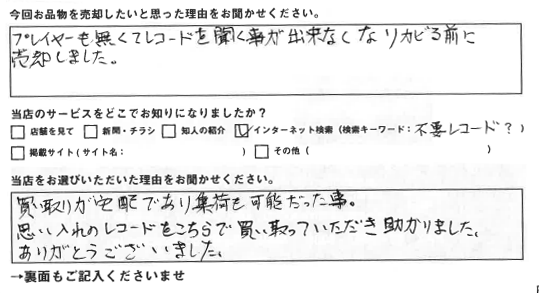 今回お品物を売却したいと思った理由をお聞かせください。
プレイヤーも無くてレコードを聞く事が出来なくなりカビる前に
売却しました。
当店のサービスをどこでお知りになりましたか？
□ 店舗を見て □ 新聞・チラシ □ 知人の紹介 ☑ インターネット検索（検索キーワード：不要レコード？）
□ 掲載サイト（サイト名： ） □ その他（ ）
当店をお選びいただいた理由をお聞かせください。
買い取りが宅配であり集荷も可能だった事。
思い入れのレコードをこちらで買い取っていただき助かりました。
ありがとうございました。
→裏面もご記入くださいませ